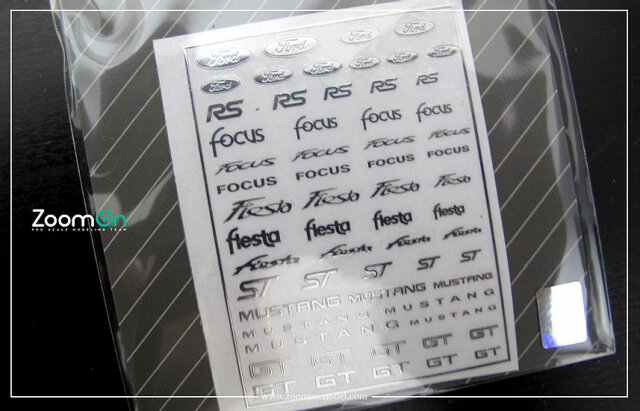 Ford Ford Ford Ford
Ford Ford Ford Ford Ford Ford
RS RS RS RS RS
focus focus focus focus
FOCUS FOCUS FOCUS FOCUS
FOCUS FOCUS FOCUS FOCUS
Fiesta Fiesta Fiesta Fiesta
fiesta fiesta fiesta fiesta
Fiesta Fiesta Fiesta Fiesta
ST ST ST ST ST
MUSTANG MUSTANG MUSTANG
MUSTANG MUSTANG
MUSTANG MUSTANG
GT GT GT GT GT
GT GT GT GT GT
ZoomOn
PRO SCALE MODELING TEAM
www.zoomonmodel.com